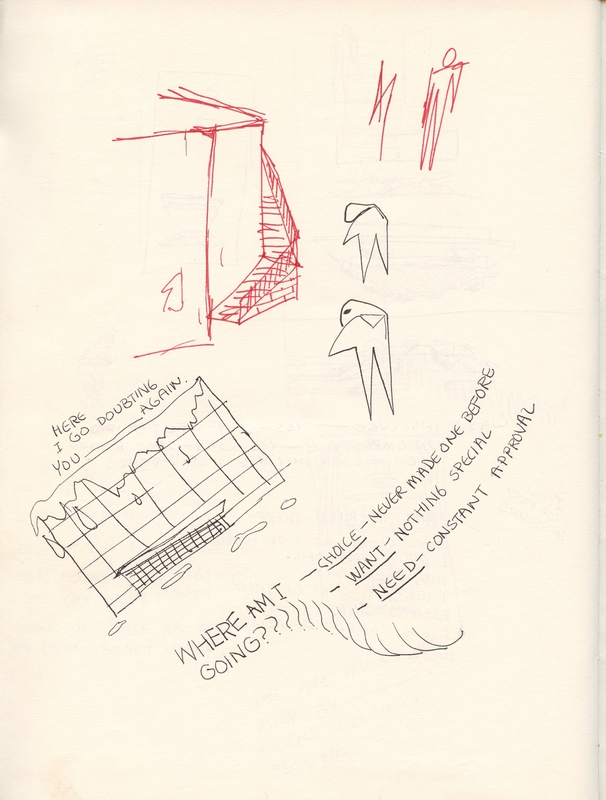 HERE
I GO DOUBTING
YOU AGAIN.
WHERE AM I
GOING??
— CHOICE – NEVER MADE ONE BEFORE
– WANT – NOTHING SPECIAL
– NEED – CONSTANT APPROVAL